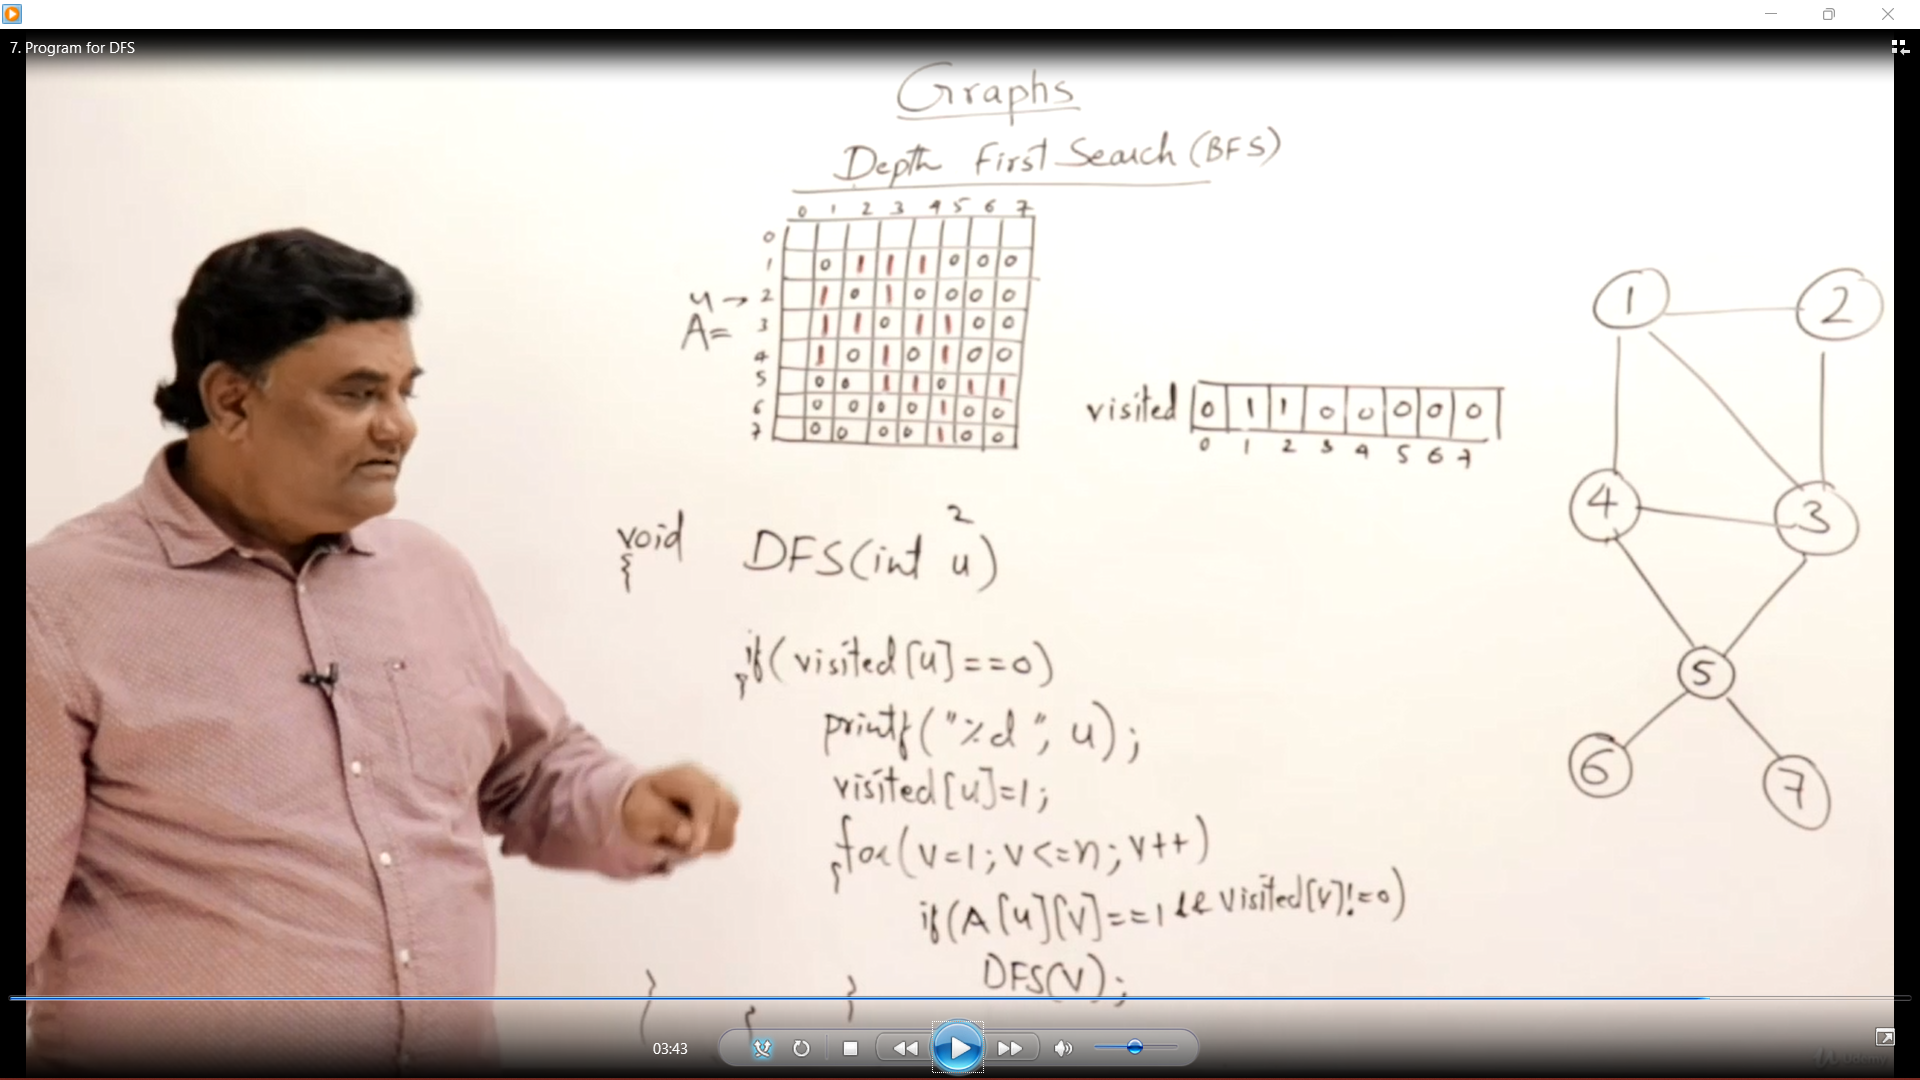 7. Program for DFS
Graphs
Depth First Search (BFS)
0 1 2 3 4 5 6 7
0
1 0 1 1 1 0 0 0
u → 2 1 0 1 0 0 0 0
A= 3 1 1 0 1 1 0 0
4 1 0 1 0 1 0 0
5 0 0 1 1 0 1 1
6 0 0 0 0 1 0 0
7 0 0 0 0 1 0 0
visited 0 1 1 0 0 0 0 0
0 1 2 3 4 5 6 7
1 2
4 3
5
6 7
2
void DFS(int u)
{
if(visited[u]==0)
{
printf("%d", u);
visited[u]=1;
for(v=1; v<=n; v++)
{
if(A[u][v]==1 && visited[v]!=0)
DFS(v);
} } }
03:43
Udemy